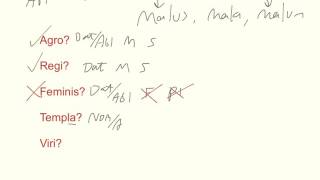 Abl
malus, mala, malum
Agro? Dat/Abl M S
Regi? Dat M S
Feminis? Dat/Abl F Pl
Templa? NOM/A
Viri?